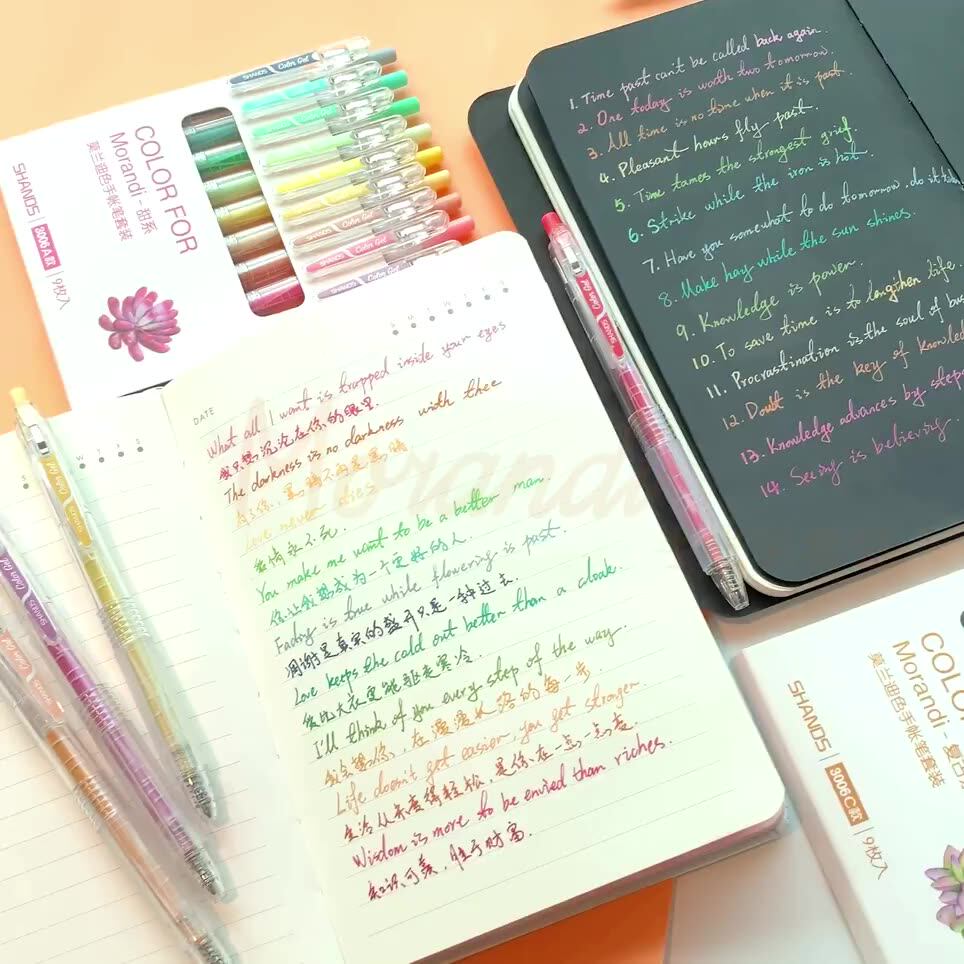 COLOR FOR
Morandi - 甜系
莫兰迪色手帐笔套装
SHANDS | 3006A款 | 9枚入
SHANDS Color Gel
SHANDS Color Gel
Color Gel
Color Gel
SHANDS Color Gel
SHANDS Color Gel
1. Time past can't be called back again.
2. One today is worth two tomorrow.
3. All time is no time when it is past.
4. Pleasant hours fly past.
5. Time tames the strongest grief.
6. Strike while the iron is hot.
7. Have you somewhat to do tomorrow, do it
8. Make hay while the sun shines.
9. Knowledge is power.
10. To save time is to lengthen life.
11. Procrastination is the soul of
12. Doubt is the key of
13. Knowledge advances by
14. Seeing is believing.
Color Gel SHANDS
S M T W T F S
DATE
What all I want is trapped inside your eyes
我只想沉沦在你的眼里.
The darkness is no darkness with thee
有了你，黑暗不再是黑暗
Love never dies
爱情永不死.
You make me want to be a better man.
你让我想成为一个更好的人.
Fading is true while flowering is past.
凋谢是真实的盛开只是一种过去
Love keeps the cold out better than a cloak.
爱比大衣更能驱走寒冷.
I'll think of you every step of the way.
我会想你，在漫漫长路的每一步
Life doesn't get easier, you get stronger.
生活从未变得轻松，是你在一点一点
Wisdom is more to be envied than riches.
知识可羡，胜于财富.
T F S
S
Color Gel SHANDS
Color Gel SHANDS
Color Gel SHANDS
Morandi
COLO
Morandi - 复古
莫兰迪色手帐笔套装
SHANDS | 3006C款 | 9枚入